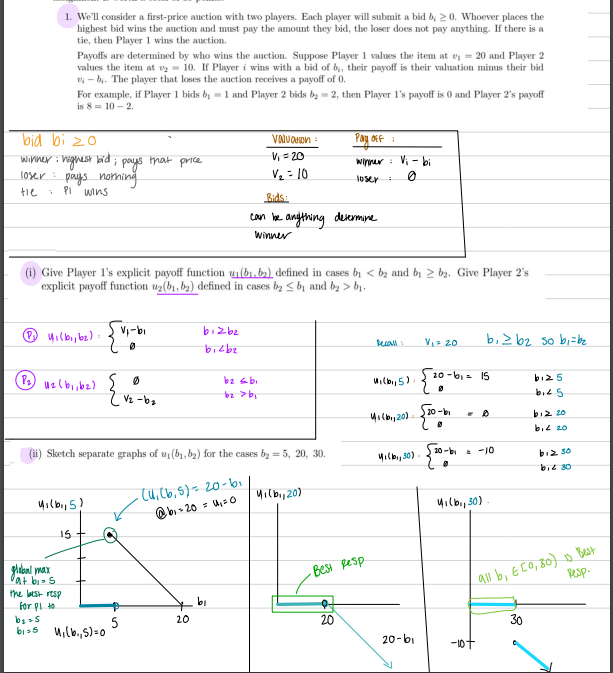 1. We'll consider a first-price auction with two players. Each player will submit a bid bᵢ ≥ 0. Whoever places the
highest bid wins the auction and must pay the amount they bid, the loser does not pay anything. If there is a
tie, then Player 1 wins the auction.
Payoffs are determined by who wins the auction. Suppose Player 1 values the item at v₁ = 20 and Player 2
values the item at v₂ = 10. If Player i wins with a bid of bᵢ, their payoff is their valuation minus their bid
vᵢ − bᵢ. The player that loses the auction receives a payoff of 0.
For example, if Player 1 bids b₁ = 1 and Player 2 bids b₂ = 2, then Player 1's payoff is 0 and Player 2's payoff
is 8 = 10 − 2.
bid bi ≥ 0
winner : highest bid ; pays that price
loser : pays nothing
tie : P1 wins
Valuation :
V₁ = 20
V₂ = 10
Pay off :
winner : Vi − bi
loser : 0
Bids:
can be anything determine
winner
(i) Give Player 1's explicit payoff function u₁(b₁, b₂) defined in cases b₁ < b₂ and b₁ ≥ b₂. Give Player 2's
explicit payoff function u₂(b₁, b₂) defined in cases b₂ ≤ b₁ and b₂ > b₁.
P₁ u₁(b₁,b₂) : { V₁−b₁ b₁≥b₂
0 b₁<b₂
P₂ u₂(b₁,b₂) { 0 b₂ ≤ b₁
V₂ − b₂ b₂ > b₁
Recall : V₁ = 20 b₁ ≥ b₂ so b₁=b₂
u₁(b₁,5) : { 20 − b₁ = 15 b₁≥ 5
0 b₁< 5
u₁(b₁,20) : { 20 − b₁ = 0 b₁≥ 20
0 b₁< 20
u₁(b₁,30) : { 20 − b₁ = −10 b₁≥ 30
0 b₁< 30
(ii) Sketch separate graphs of u₁(b₁, b₂) for the cases b₂ = 5, 20, 30.
u₁(b₁,5)
(u₁(b,5) = 20 − b₁
@ b₁ = 20 = u₁=0
15
global max
at b₁ = 5
the best resp
for P1 to
b₂ = 5
b₁ = 5
u₁(b₁,5)=0
5
20
b₁
u₁(b₁,20)
Best Resp
20
20−b₁
u₁(b₁,30)
all b₁ ∈ [0,30) is Best
Resp.
30
−10